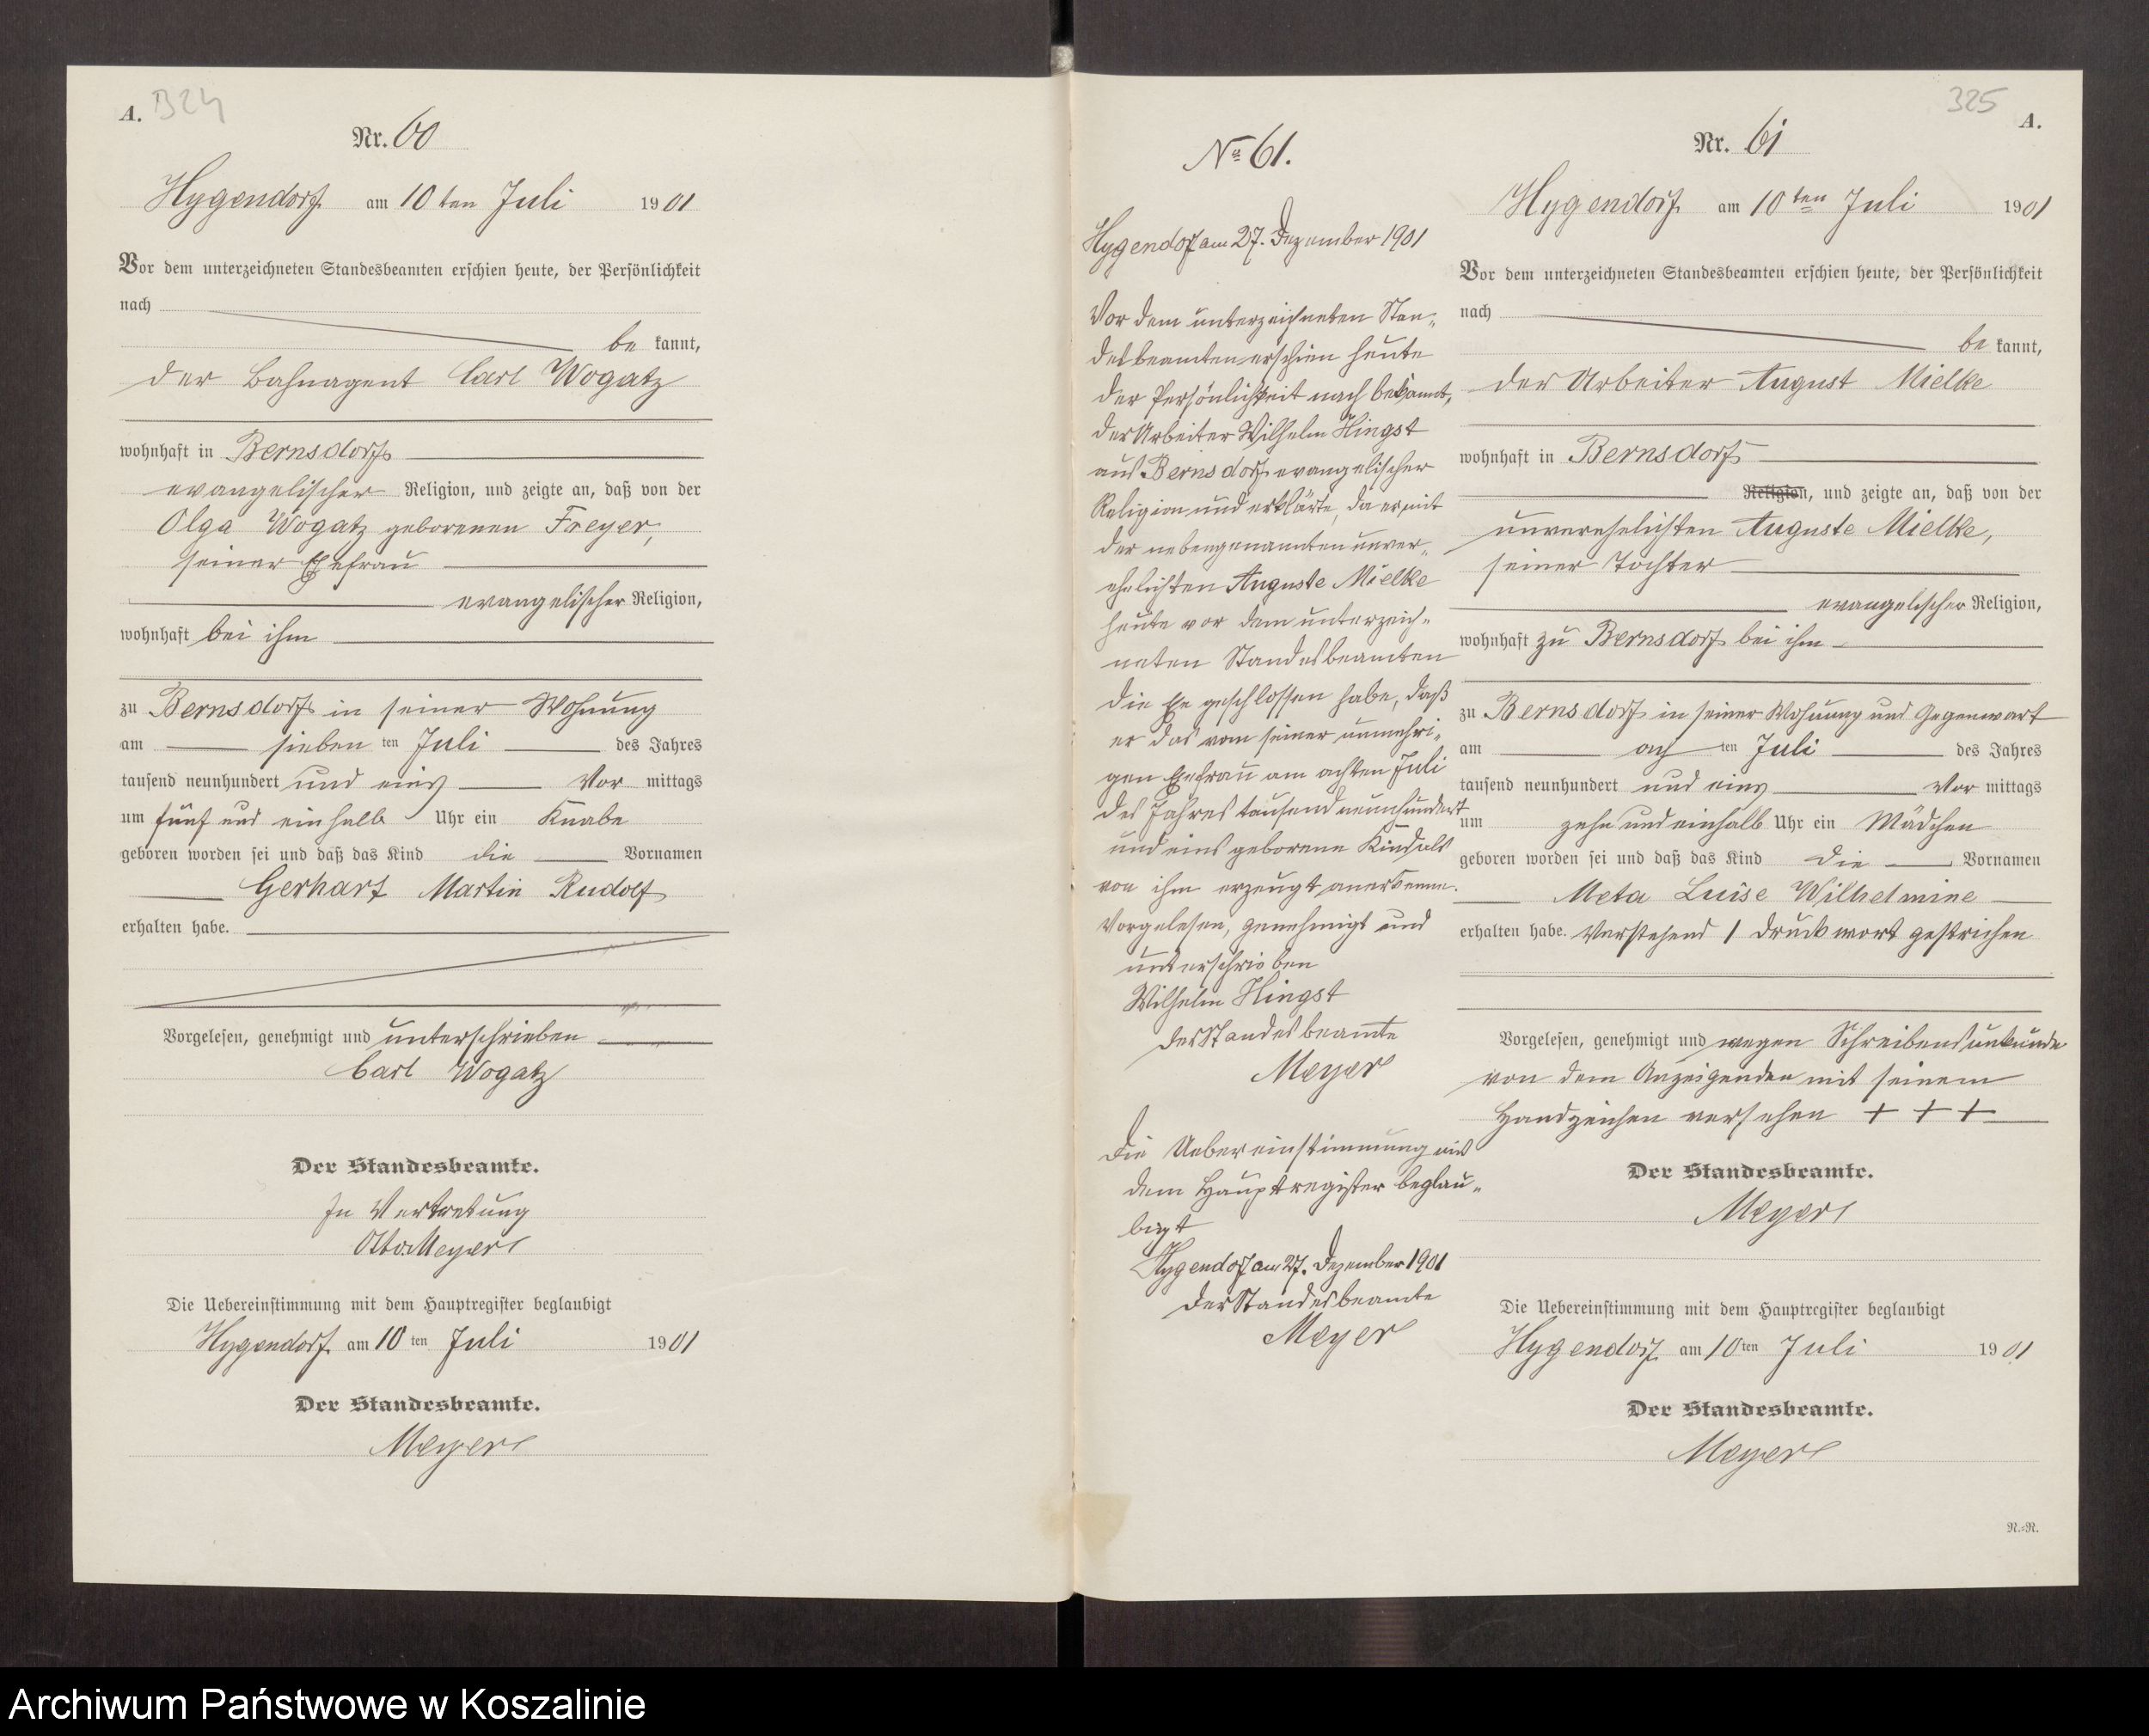 A. 324
Nr. 60
Hygendorf am 10ten Juli 1901
Vor dem unterzeichneten Standesbeamten erschien heute, der Persönlichkeit
nach
be kannt,
der Bahnagent Carl Wogatz
wohnhaft in Bernsdorf
evangelischer Religion, und zeigte an, daß von der
Olga Wogatz geborenen Freyer,
seiner Ehefrau
evangelischer Religion,
wohnhaft bei ihm
zu Bernsdorf in seiner Wohnung
am sieben ten Juli des Jahres
tausend neunhundert und eins Vor mittags
um fünf und einhalb Uhr ein Knabe
geboren worden sei und daß das Kind die Vornamen
Gerhart Martin Rudolf
erhalten habe.
Vorgelesen, genehmigt und unterschrieben
Carl Wogatz
Der Standesbeamte.
In Vertretung
Otto Meyer
Die Uebereinstimmung mit dem Hauptregister beglaubigt
Hygendorf am 10 ten Juli 1901
Der Standesbeamte.
Meyer
No 61.
Hygendorf am 27. Dezember 1901
Vor dem unterzeichneten Stan-
desbeamten erschien heute
der Persönlichkeit nach bekannt,
der Arbeiter Wilhelm Hingst
aus Bernsdorf evangelischer
Religion und erklärte, da er mit
der nebengenannten unver-
ehelichten Auguste Mielke
heute vor dem unterzeich-
neten Standesbeamten
die Ehe geschlossen habe, daß
er das von seiner nunmehri-
gen Ehefrau am achten Juli
des Jahres tausend neunhundert
und eins geborene Kind als
von ihm erzeugt anerkenne.
Vorgelesen, genehmigt und
unterschrieben
Wilhelm Hingst
Der Standesbeamte
Meyer
Die Uebereinstimmung mit
dem Hauptregister beglau-
bigt
Hygendorf am 27. Dezember 1901
Der Standesbeamte
Meyer
325 A.
Nr. 61
Hygendorf am 10ten Juli 1901
Vor dem unterzeichneten Standesbeamten erschien heute, der Persönlichkeit
nach
be kannt,
der Arbeiter August Mielke
wohnhaft in Bernsdorf
Religion, und zeigte an, daß von der
unverehelichten Auguste Mielke,
seiner Tochter
evangelischer Religion,
wohnhaft zu Bernsdorf bei ihm
zu Bernsdorf in seiner Wohnung und Gegenwart
am ach ten Juli des Jahres
tausend neunhundert und eins Vor mittags
um zehn und einhalb Uhr ein Mädchen
geboren worden sei und daß das Kind die Vornamen
Meta Luise Wilhelmine
erhalten habe. Vorstehend 1 Druckwort gestrichen
Vorgelesen, genehmigt und wegen Schreibensunkunde
von dem Anzeigenden mit seinem
Handzeichen versehen + + +
Der Standesbeamte.
Meyer
Die Uebereinstimmung mit dem Hauptregister beglaubigt
Hygendorf am 10 ten Juli 1901
Der Standesbeamte.
Meyer
N.=N.
Archiwum Państwowe w Koszalinie